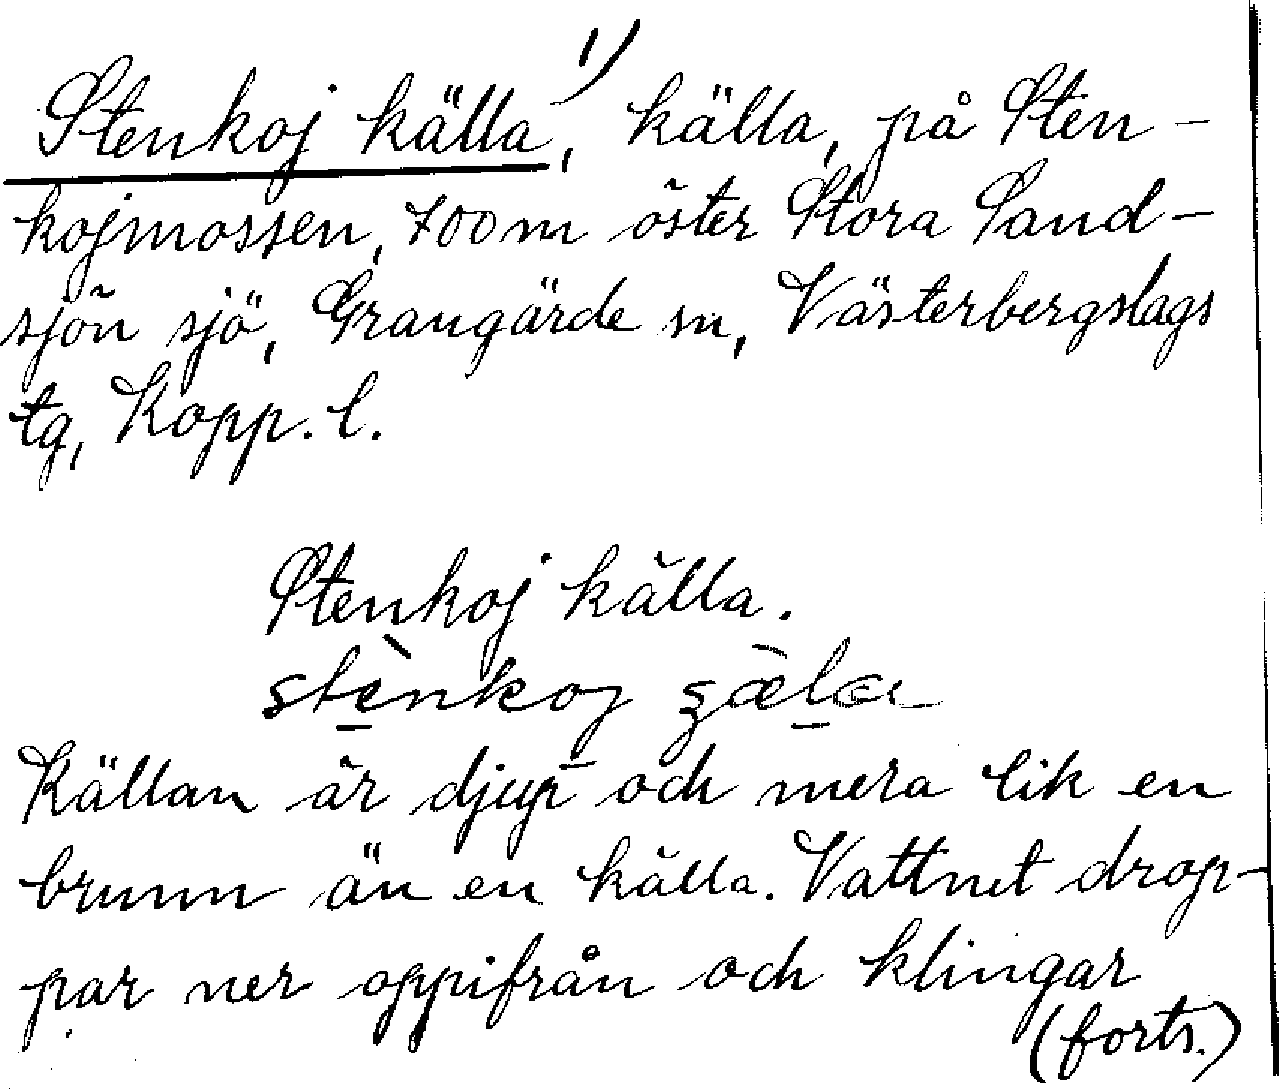 Stenkoj källa,¹⁾ källa, på Sten-
kojmossen, 700 m öster Stora Sand-
sjön sjö, Grangärde sn, Västerbergslags
tg, Kopp. l.
Stenkoj källa.
stènkoj
Källan är djup och mera lik en
brunn än en källa. Vattnet drop-
par ner oppifrån och klingar
(forts.)